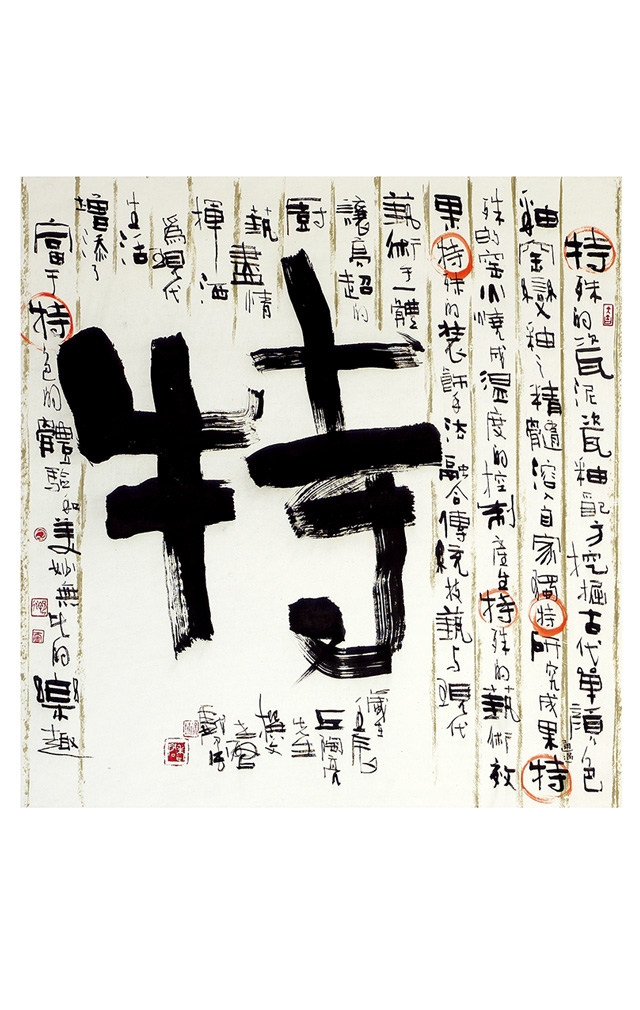 特殊的瓷泥瓷釉配方挖掘古代單顏色
釉窑變釉之精髓溶入自家獨特研究成果通過特
殊的窑火燒成溫度的控制產生特殊的藝術效
果特殊的装飾手法融合傳統技藝与現代
藝術于一體
讓高超的
廚
藝盡情
揮洒
爲現代
生活
增添了
富于特色的體驗和美妙無比的樂趣
特
丘陶亮
先生
撰文